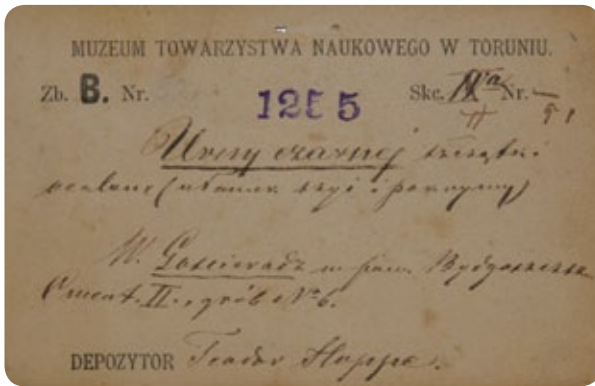 MUZEUM TOWARZYSTWA NAUKOWEGO W TORUNIU.
Zb. B. Nr. 1255 Skc. Nr.
Urny czarnej szczątki
ocalone (ułamek szyi i pokrywy)
W. Gościeradz w pow. Bydgoszcz
Cment. II. grób No 6.
DEPOZYTOR Teodor Huppe.